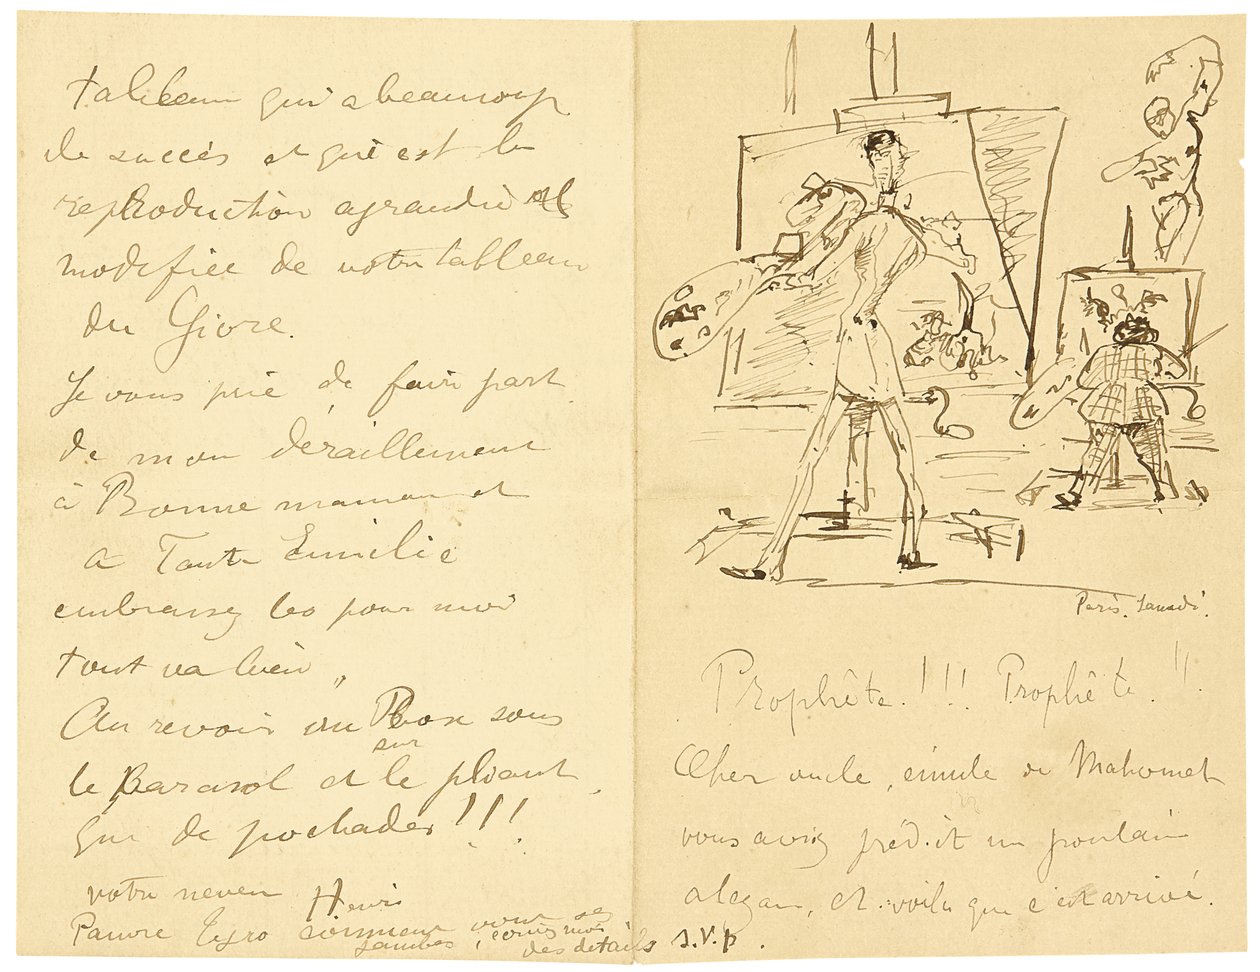 tableau qui a beaucoup
de succès et qui est la
reproduction agrandie et
modifiée de votre tableau
du Givre.
Je vous prie de faire part
de mon déraillement
à Bonne maman et
a Tante Emilie
embrassez les pour moi
tout va bien
Au revoir un Box sous
le Parasol et sur le pliant,
que de pochades!!!
votre neveu Henri
Pauvre Tyro comment vont ses
jambes, moi
des détails s.v.p.
Paris. Samedi.
Prophête!!! Prophête!!
Cher oncle, émule de Mahomet
vous aviez prédit un poulain
alezan, et voilu que c'est arrivé.